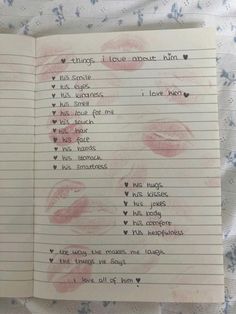 ♥ things i love about him ♥
♥ his smile
♥ his eyes
♥ his kindness
♥ his smell
♥ his love for me
♥ his touch
♥ his hair
♥ his face
♥ his hands
♥ his stomach
♥ his smartness
i love him ♥
♥ his hugs
♥ his kisses
♥ his jokes
♥ his body
♥ his comfort
♥ his helpfulness
♥ the way he makes me laugh
♥ the things he says
i love all of him ♥